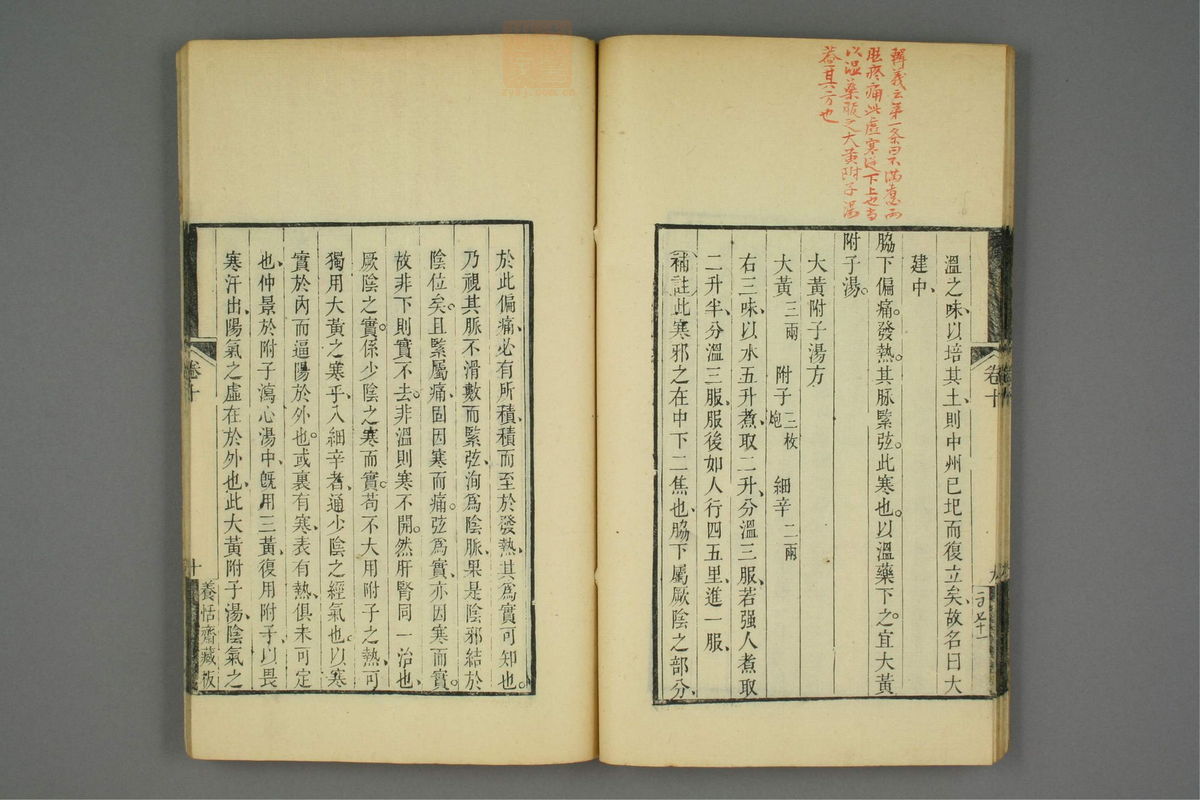 溫之味、以培其土、則中州已圯而復立矣、故名曰大
建中、
脇下偏痛。發熱。其脉緊弦。此寒也。以溫藥下之。宜大黃
附子湯。
大黃附子湯方
大黃三兩 附子三枚炮 細辛二兩
右三味、以水五升煮、取二升、分溫三服、若强人煮取
二升半、分溫三服、服後如人行四五里、進一服、
補註此寒邪之在中下二焦也、脇下屬厥陰之部分、
卷十
九
於此偏痛、必有所積、積而至於發熱、其爲實可知也。
乃視其脈不滑數而緊弦、洵爲陰脈、果是陰邪結於
陰位矣。且緊屬痛、固因寒而痛。弦爲實、亦因寒而實。
故非下則實不去。非溫則寒不開。然肝腎同一治也、
厥陰之實。係少陰之寒而實。苟不大用附子之熱、可
獨用大黃之寒乎、入細辛者、通少陰之經氣也。以寒
實於內而逼陽於外也。或裏有寒、表有熱、俱未可定
也、仲景於附子瀉心湯中、旣用三黃、復用附子、以畏
寒汗出、陽氣之虛在於外也、此大黃附子湯、陰氣之
卷十
十
養恬齋藏板
釋義云第一条曰不滿者必兩
胠疼痛此虛寒從下上也当
以溫藥服之大黃附子湯
蓋其方也